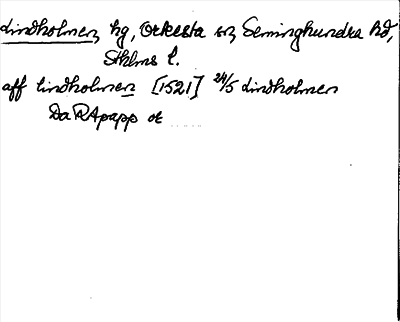 Lindholmen, hg, Orkesta sn, Seminghundra hd,
Sthlms l.
aff lindholmen [1521] 24/5 Lindholmen
Da RA papp or